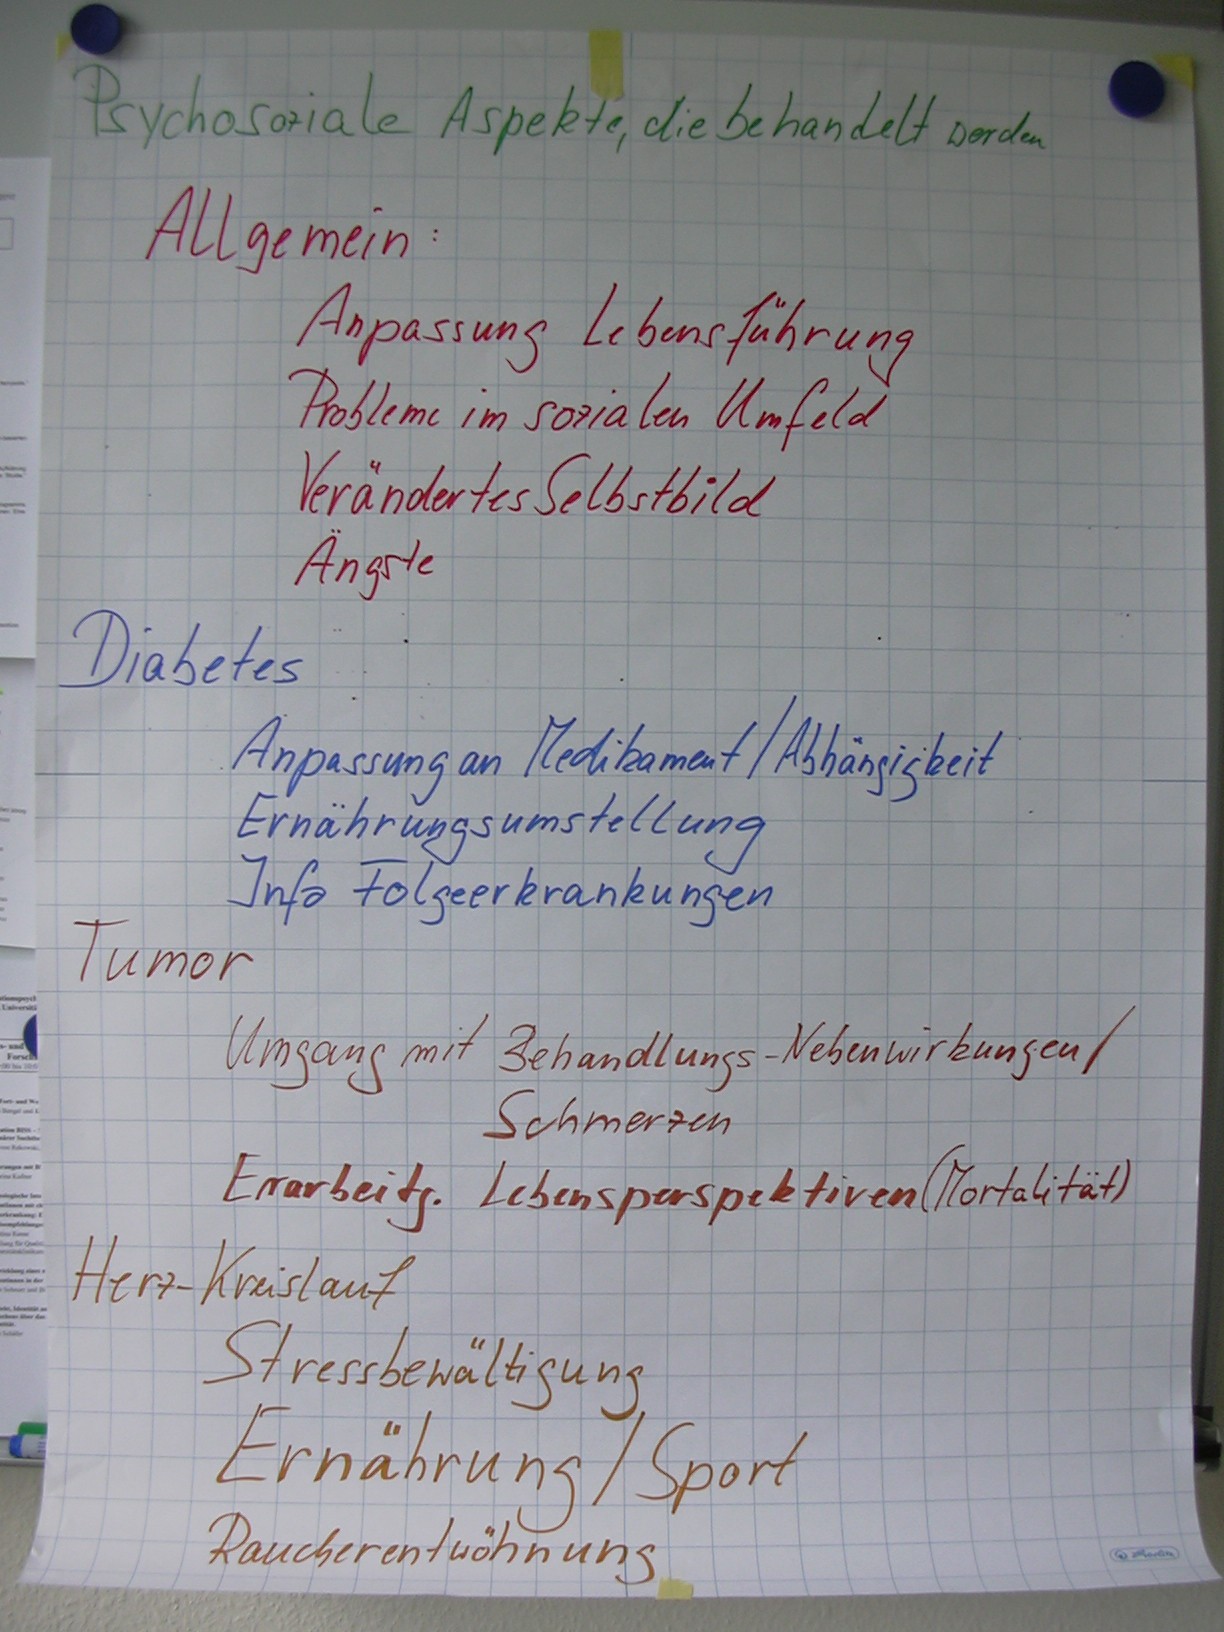 Psychosoziale Aspekte, die behandelt werden
Allgemein:
Anpassung Lebensführung
Probleme im sozialen Umfeld
Verändertes Selbstbild
Ängste
Diabetes
Anpassung an Medikament/Abhängigkeit
Ernährungsumstellung
Info Folgeerkrankungen
Tumor
Umgang mit Behandlungs-Nebenwirkungen/
Schmerzen
Erarbeitg. Lebensperspektiven (Mortalität)
Herz-Kreislauf
Stressbewältigung
Ernährung/Sport
Raucherentwöhnung